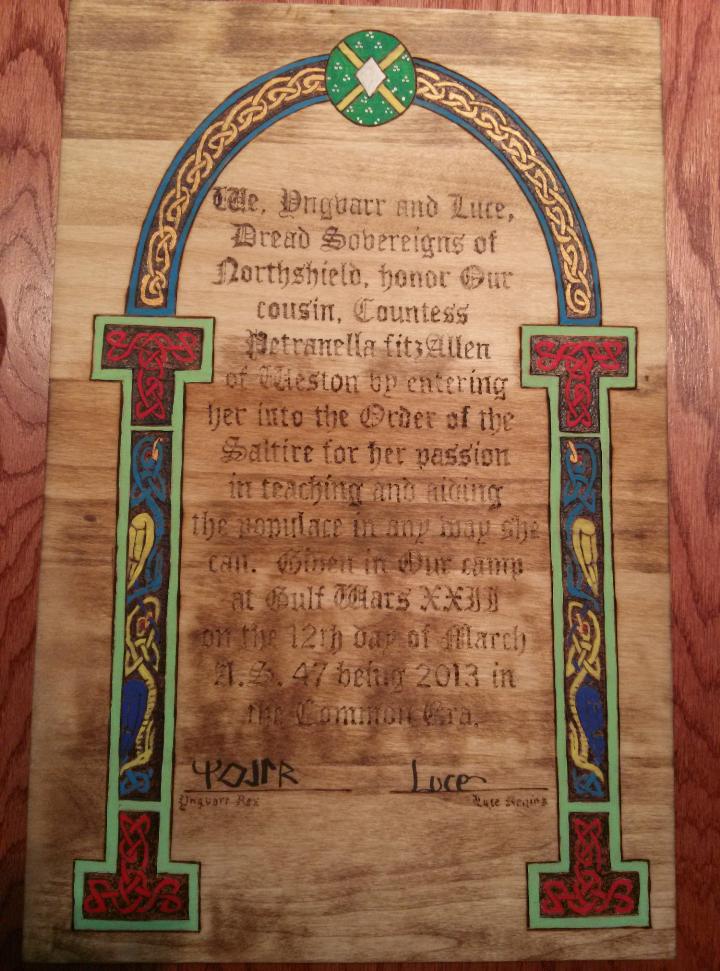 We, Yngvarr and Luce,
Dread Sovereigns of
Northshield, honor Our
cousin, Countess
Petranella fitzAllen
of Weston by entering
her into the Order of the
Saltire for her passion
in teaching and aiding
the populace in any way she
can. Given in Our camp
at Gulf Wars XXII
on the 12th day of March
A.S. 47 being 2013 in
the Common Era.
Luce
Yngvarr Rex Luce Regina